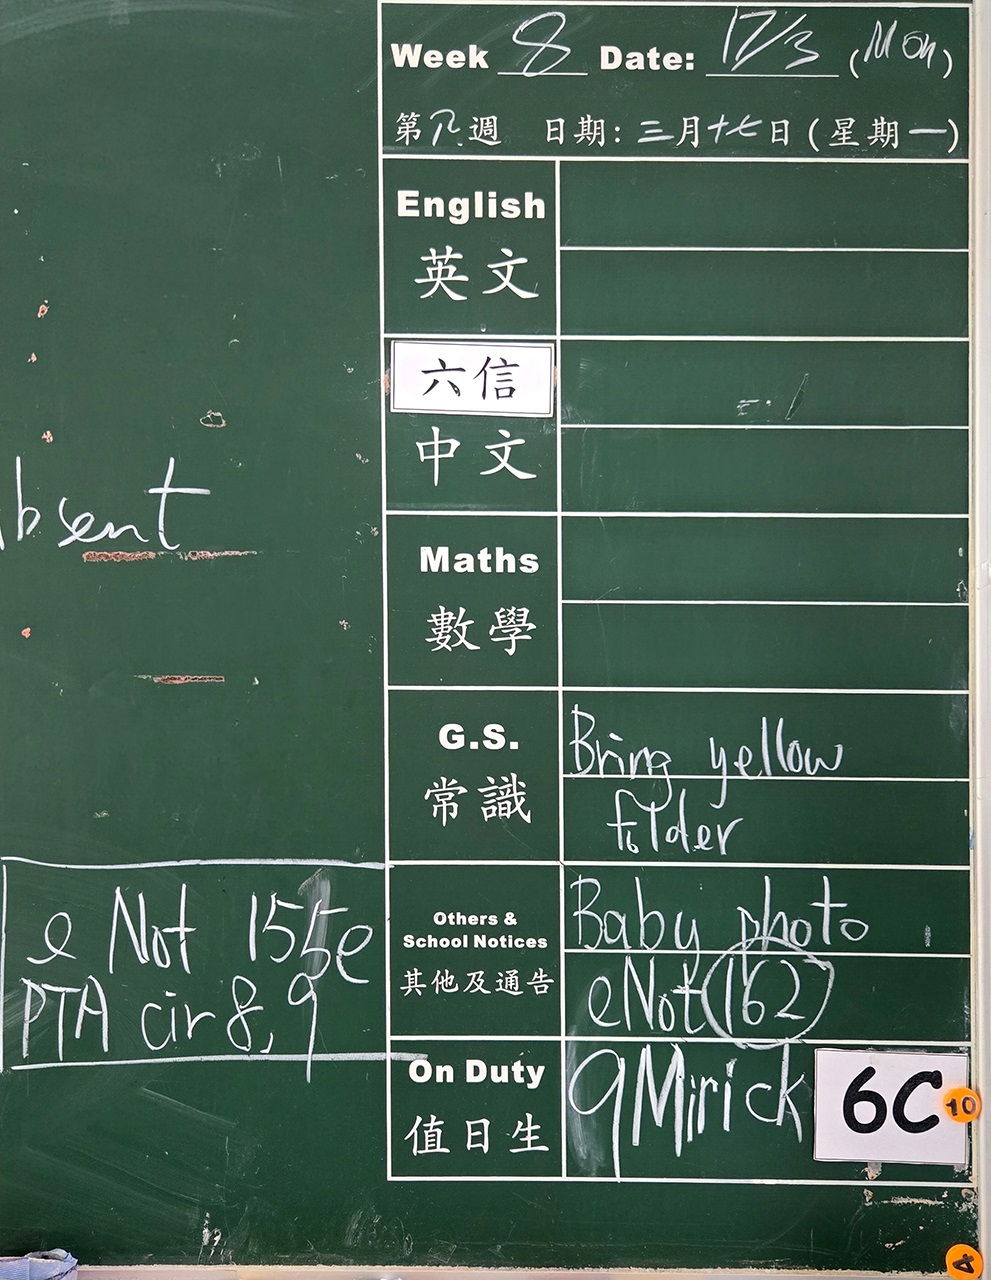 Week 8 Date: 17/3 (Mon)
第八週 日期: 三月十七日 (星期一)
English
英文
六信
中文
Maths
數學
bsent
G.S.
常識
Bring yellow
folder
Others &
School Notices
其他及通告
Baby photo
eNot 162
e Not 155e
PTA cir 8, 9
On Duty
值日生
9 Mirick
6C
10
4